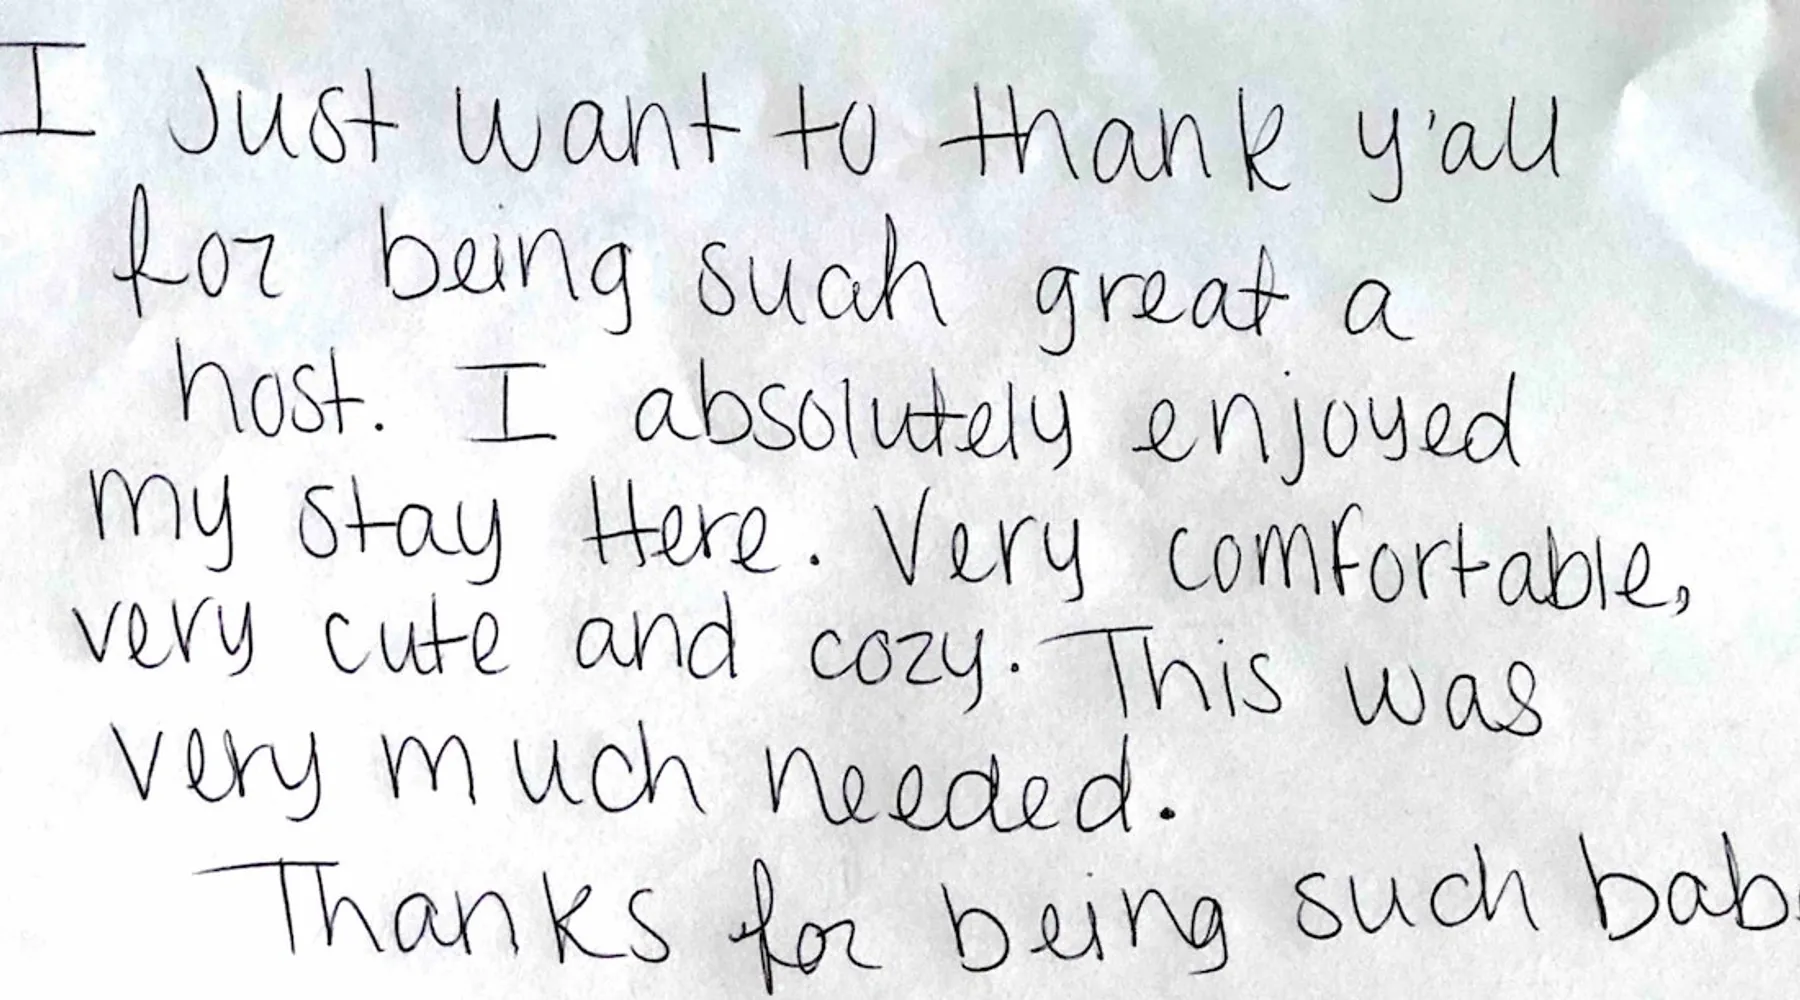 I Just want to thank y'all
for being suah great a
host. I absolutely enjoyed
my stay Here. Very comfortable,
very cute and cozy. This was
very much needed.
Thanks for being such